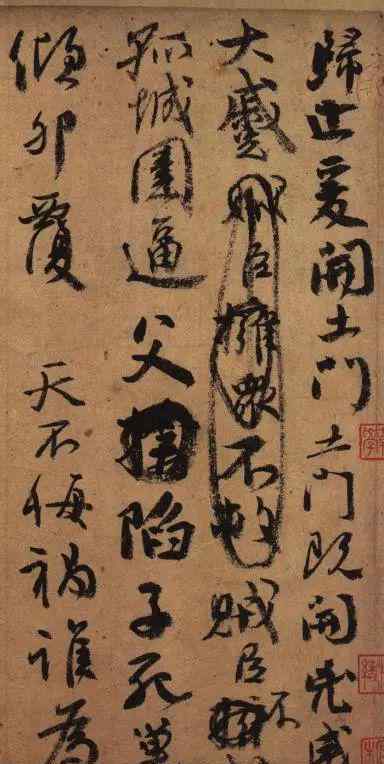 歸止爰開土門土門既開凶威
大蹙賊臣擁衆不救賊臣不
孤城圍逼父陷子死巢
傾卵覆 天不悔禍誰為